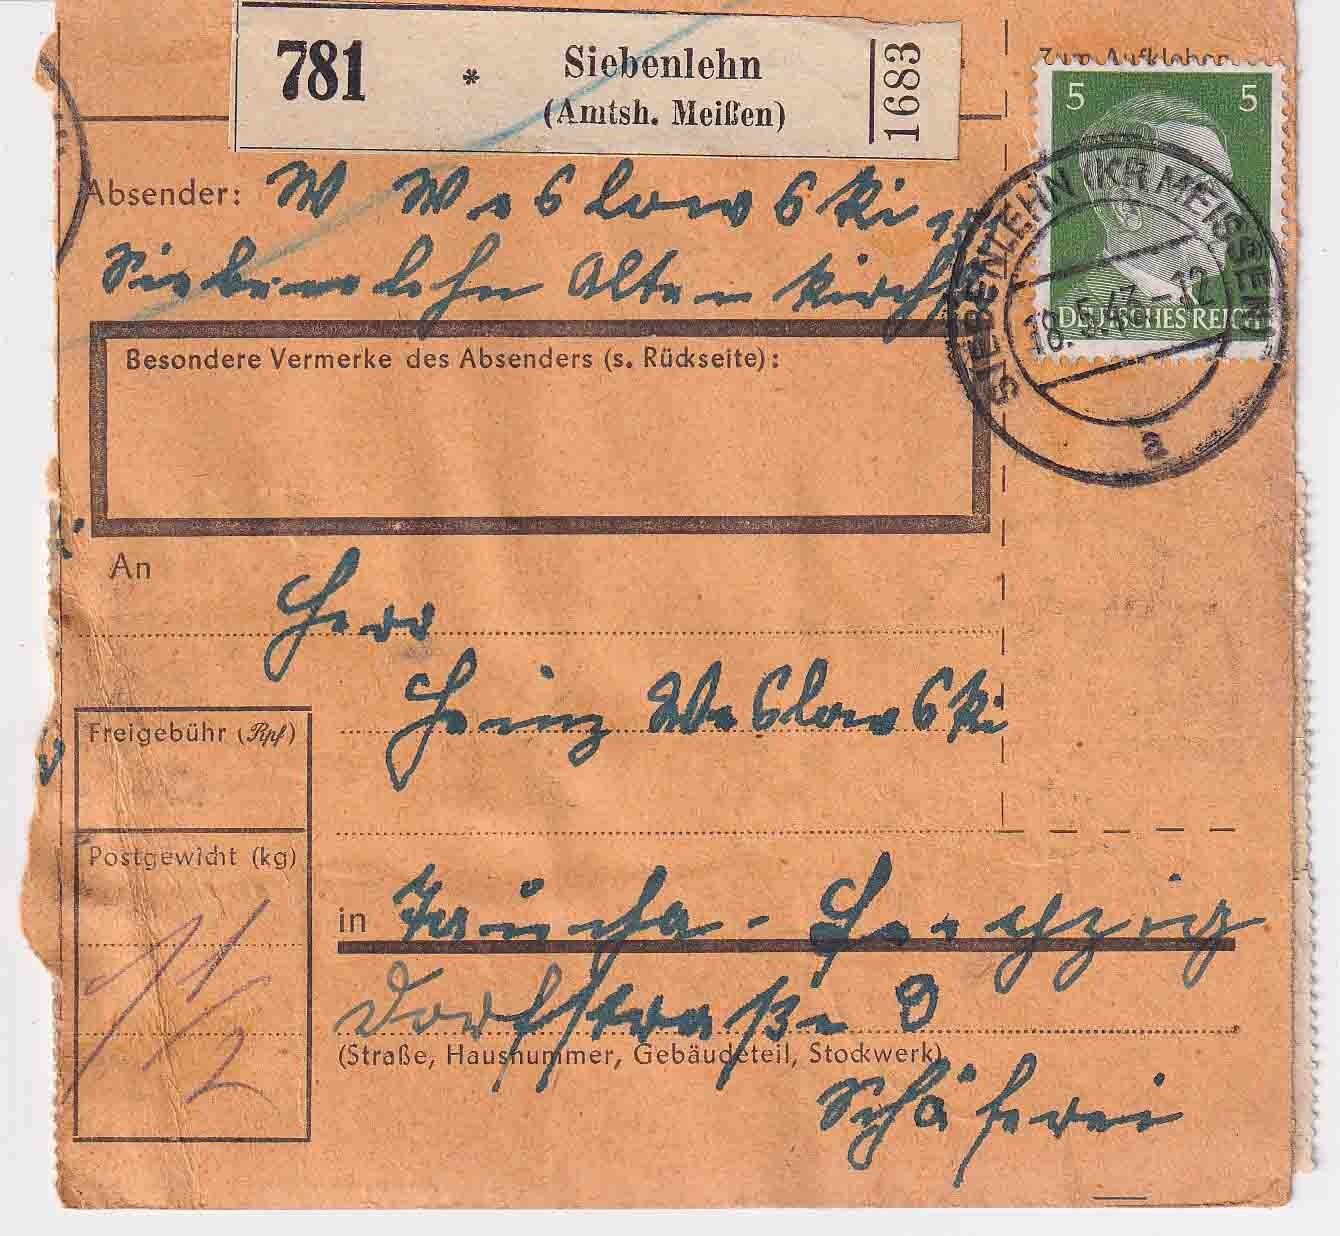 781 * Siebenlehn
(Amtsh. Meißen)
1683
Zum Aufkleben
5 5
DEUTSCHES REICH
SIEBENLEHN (KR MEISSEN)
18.5.43-12
a
Absender: W Weslowski
Siebenlehn Alten
Besondere Vermerke des Absenders (s. Rückseite):
An
Herr
Heinz Weslowski
Freigebühr (Rpf)
Postgewicht (kg)
in Taucha - Leipzig
Dorfstraße 9
(Straße, Haushummer, Gebäudeteil, Stockwerk)
Schäferei